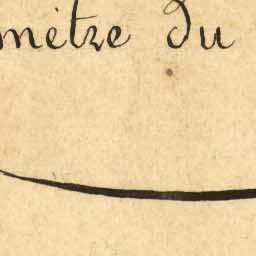 mètre du